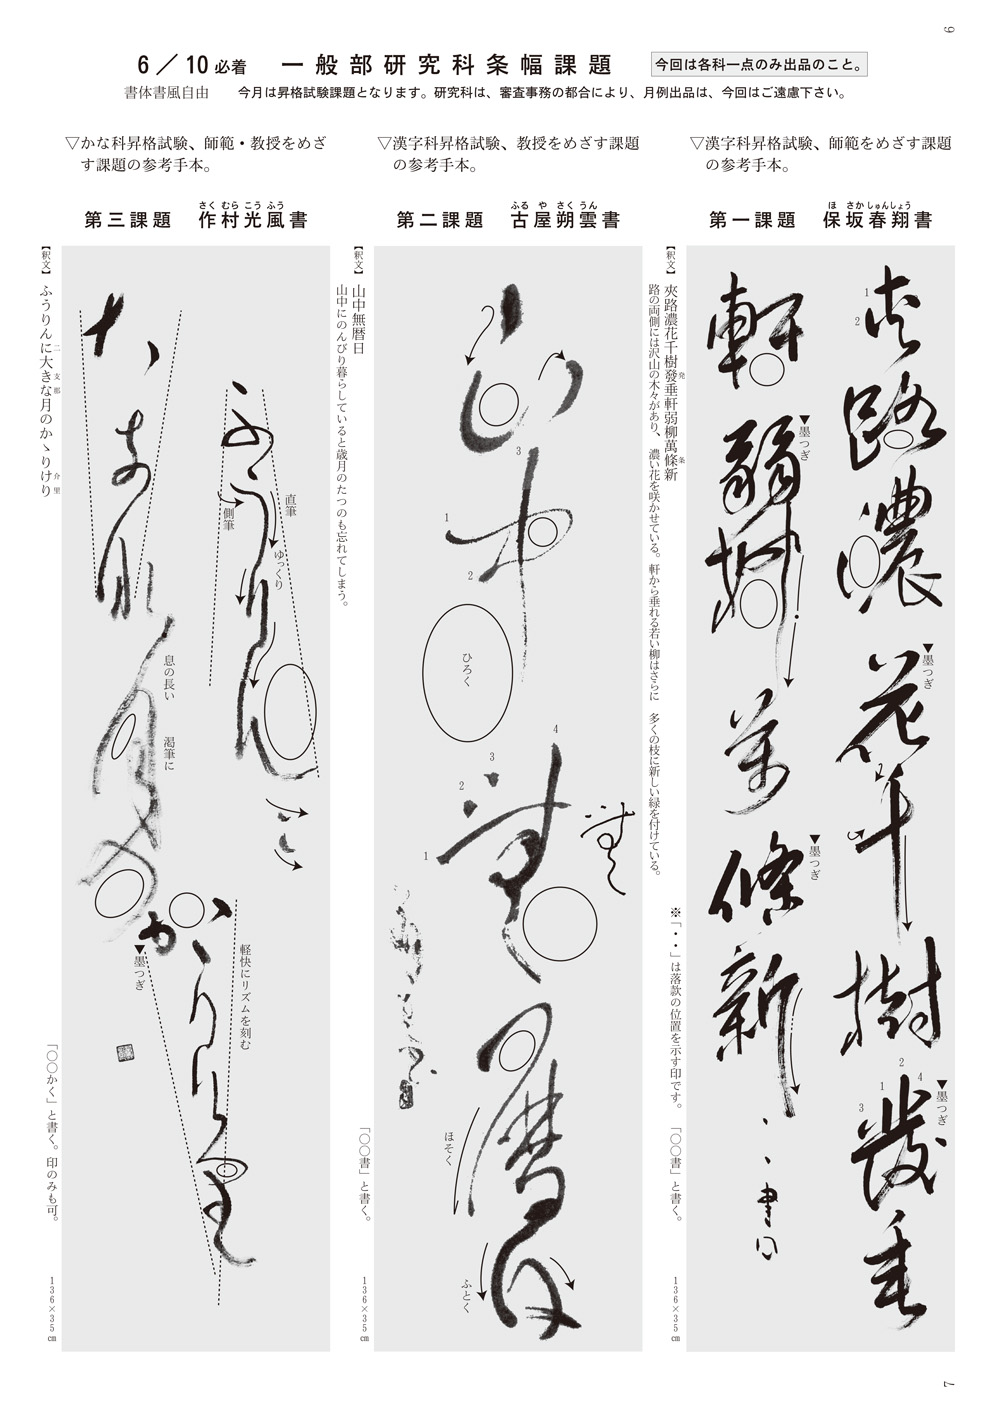 6
6／10必着 一般部研究科条幅課題
今回は各科一点のみ出品のこと。
書体書風自由 今月は昇格試験課題となります。研究科は、審査事務の都合により、月例出品は、今回はご遠慮下さい。
▽漢字科昇格試験、師範をめざす課題
の参考手本。
第一課題 保坂春翔書
ほ さか しゅんしょう
夾路濃花千樹發垂
1
2
▼墨つぎ
2
1
4
3
▼墨つぎ
軒弱柳萬條新
▼墨つぎ
▼墨つぎ
、、書 印
【釈文】夾路濃花千樹發垂軒弱柳萬條新
発
条
路の両側には沢山の木々があり、濃い花を咲かせている。軒から垂れる若い柳はさらに 多くの枝に新しい緑を付けている。
※「・・」は落款の位置を示す印です。
「〇〇書」と書く。
136×35㎝
▽漢字科昇格試験、教授をめざす課題
の参考手本。
第二課題 古屋朔雲書
ふる や さく うん
山中無暦日
3
1
2
ひろく
4
3
2
1
ほそく
ふとく
【釈文】山中無暦日
山中にのんびり暮らしていると歳月のたつのも忘れてしまう。
「〇〇書」と書く。
136×35㎝
▽かな科昇格試験、師範・教授をめざ
す課題の参考手本。
第三課題 作村光風書
さく むら こう ふう
直筆
側筆
ゆっくり
息の長い 渇筆に
▼墨つぎ
軽快にリズムを刻む
【釈文】ふうりんに大きな月のかゝりけり
二
支
那
介
里
「〇〇かく」と書く。印のみも可。
136×35㎝
7